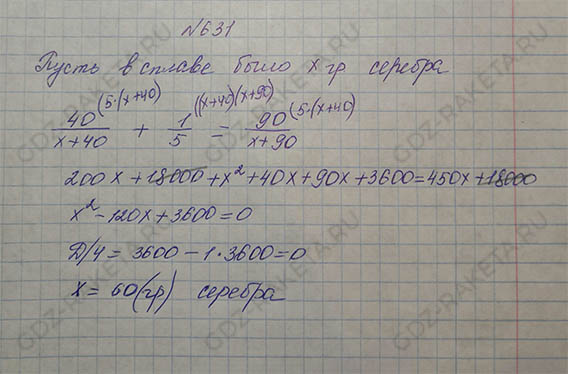 №631
Пусть в сплаве было x гр серебра
40^(5·(x+40) / x+40 + 1^((x+40)(x+90) / 5 = 90^(5·(x+40) / x+90
200x+18000+x²+40x+90x+3600=450x+18000
x²-120x+3600=0
Д/4= 3600-1·3600=0
x= 60(гр) серебра
GDZ-RAKETA.RU